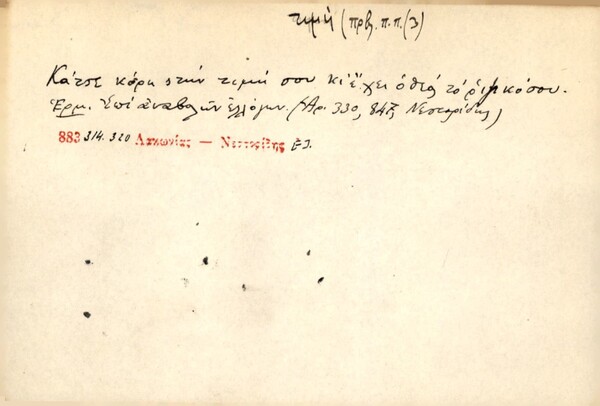 τιμή (πρβ. π.π. (3)
Κάτσε κόρη στήν τιμή σου κι ἔχει ὁ θιός τό ριζικό σου.
Ἑρμ. Ἐπί ἀναβολῶν (Ἀρ. 330, Νεστορίδης)
883 314. 320 Λακωνίας — Νεστορίδης